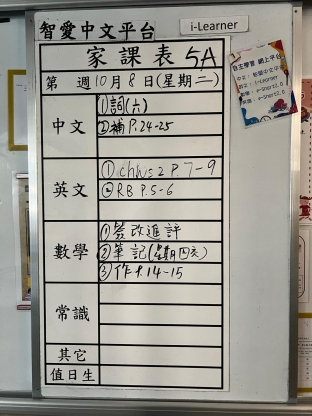 智愛中文平台
i-Learner
家課表 5A
第 週 10月8日(星期二)
中文
①詞(六)
②補 P.24-25
英文
① chws 2 P.7-9
② RB P.5-6
數學
①簽改進評
②筆記(星期四交)
③作 P.14-15
常識
其它
值日生
自主學習 網上平台
中文：智愛中文平台
英文：i-Learner